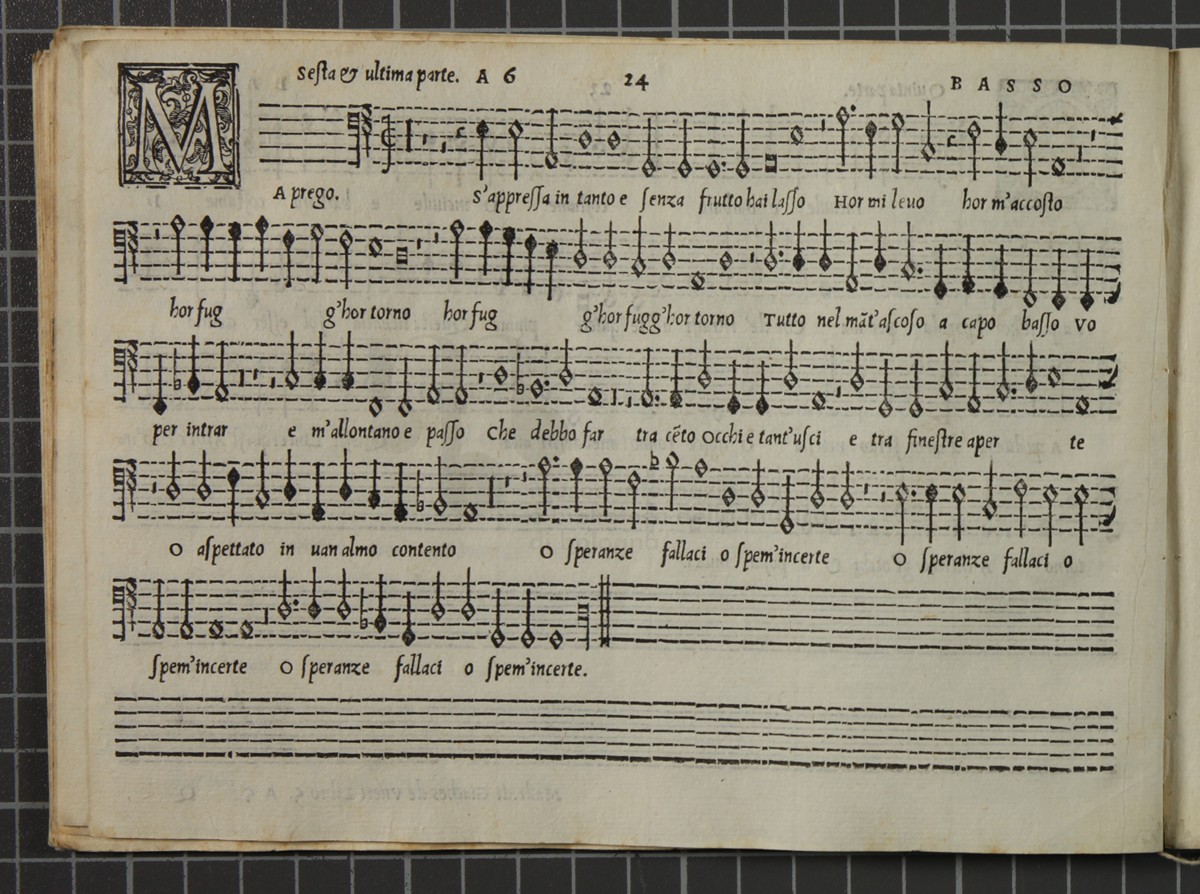 Sesta & ultima parte. A 6 24 BASSO
MA prego. S'appressa in tanto e senza frutto hai lasso Hor mi leuo hor m'accosto
hor fug g'hor torno hor fug g'hor fugg'hor torno Tutto nel mãt'ascoso a capo basso Vo
per intrar e m'allontano e passo Che debbo far tra cẽto occhi e tant'usci e tra finestre aper te
O aspettato in uan almo contento O speranze fallaci o spem'incerte O speranze fallaci o
spem'incerte O speranze fallaci o spem'incerte.